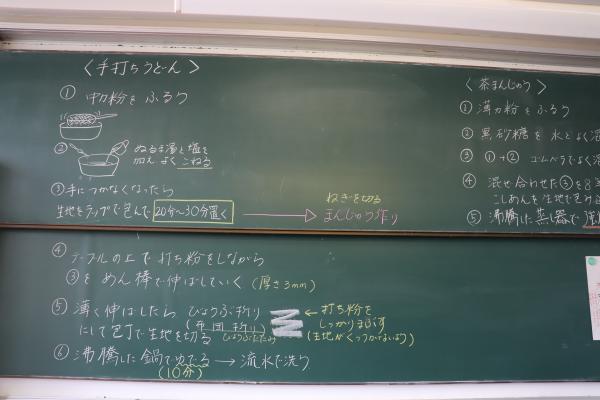 〈手打ちうどん〉
① 中力粉をふるう
② ぬるま湯と塩を
加え よく こねる
③ 手につかなくなったら
生地をラップで包んで 20分〜30分置く
ねぎを切る
まんじゅう作り
④ テーブルの上で打ち粉をしながら
③を めん棒で伸ばしていく (厚さ3mm)
⑤ 薄く伸ばしたら びょうぶ折り
にして包丁で生地を切る
びょうぶたたみ
← 打ち粉を
しっかりまぶす
(生地がくっつかないよう)
⑥ 沸騰した鍋でゆでる → 流水で洗う
(10分)
〈茶まんじゅう〉
① 薄力粉をふるう
② 黒砂糖を水とよく
③ ①+② ゴムベラでよく
④ 混ぜ合わせた③を8
こしあんを生地で包み
⑤ 沸騰した蒸し器で